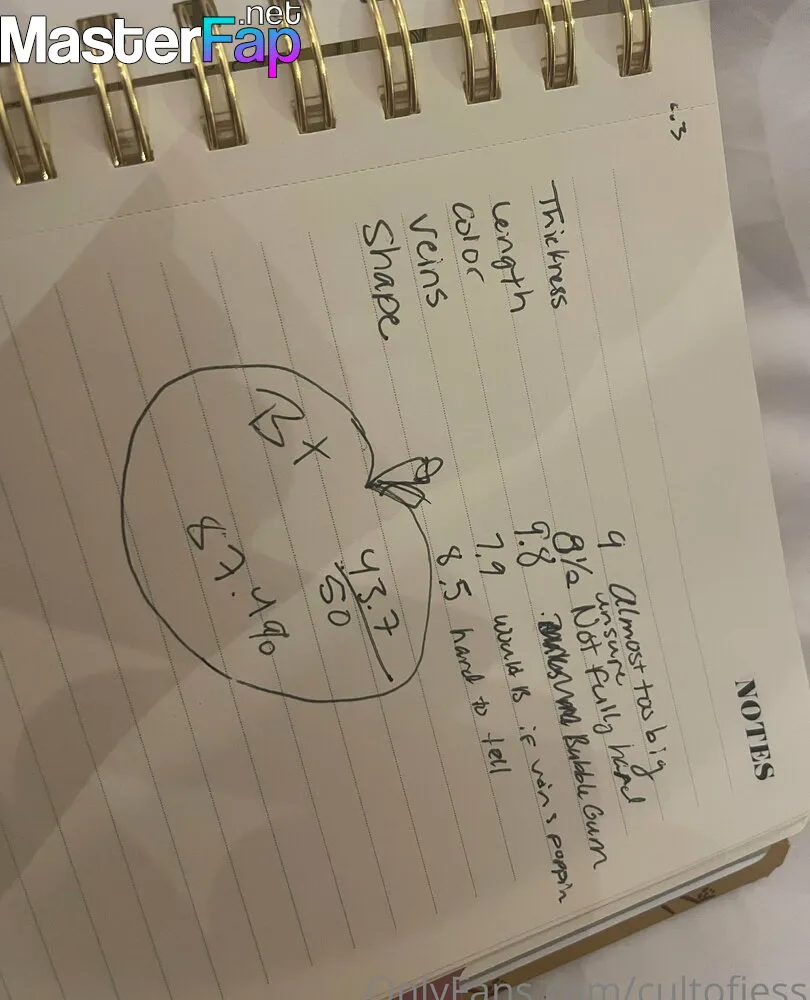 MasterFap.net
NOTES
Thickness 9 Almost too big
unsure
Length 8½ Not fully hard
Color 9.8 Bubble Gum
Veins 7.9 would B if veins poppin
Shape 8.5 hard to tell
43.7
50
B+
87.4%
OnlyFans.com/cultofjess